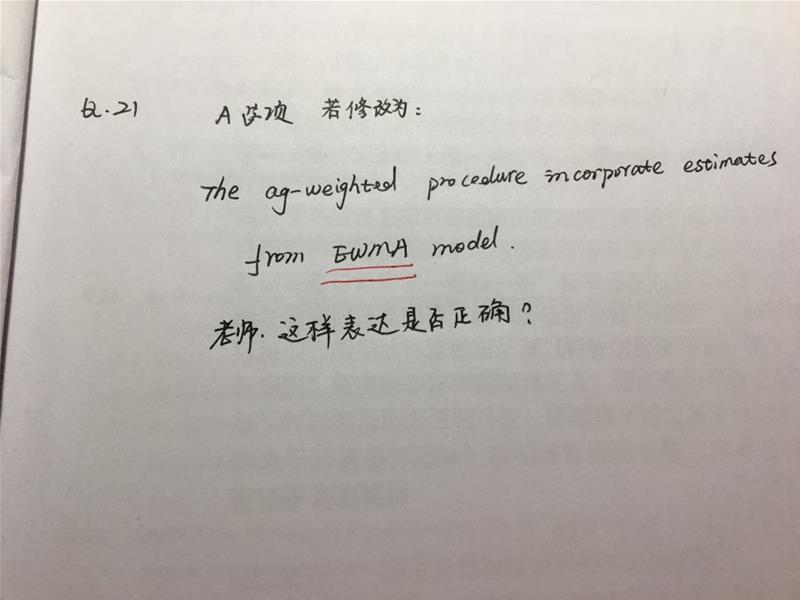 Q.21 A选项 若修改为:
The ag-weighted procedure incorporate estimates
from EWMA model.
老师. 这样表达是否正确?